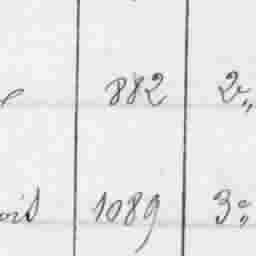 882 2°,,
oid 1089 3°,,